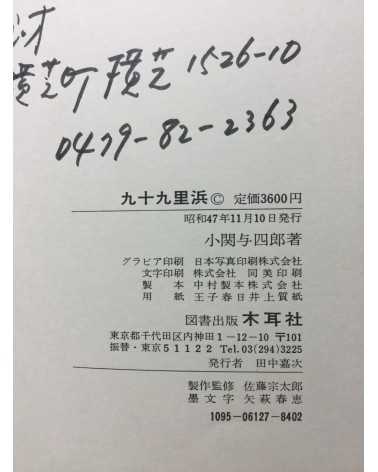 横芝町横芝1526-10
0479-82-2363
九十九里浜© 定価3600円
昭和47年11月10日発行
小関与四郎著
グラビア印刷 日本写真印刷株式会社
文字印刷 株式会社 同美印刷
製本 中村製本株式会社
用紙 王子春日井上質紙
図書出版 木耳社
東京都千代田区内神田1-12-10 〒101
振替・東京51122 Tel 03(294)3225
発行者 田中嘉次
製作監修 佐藤宗太郎
墨文字 矢萩春恵
1095-06127-8402